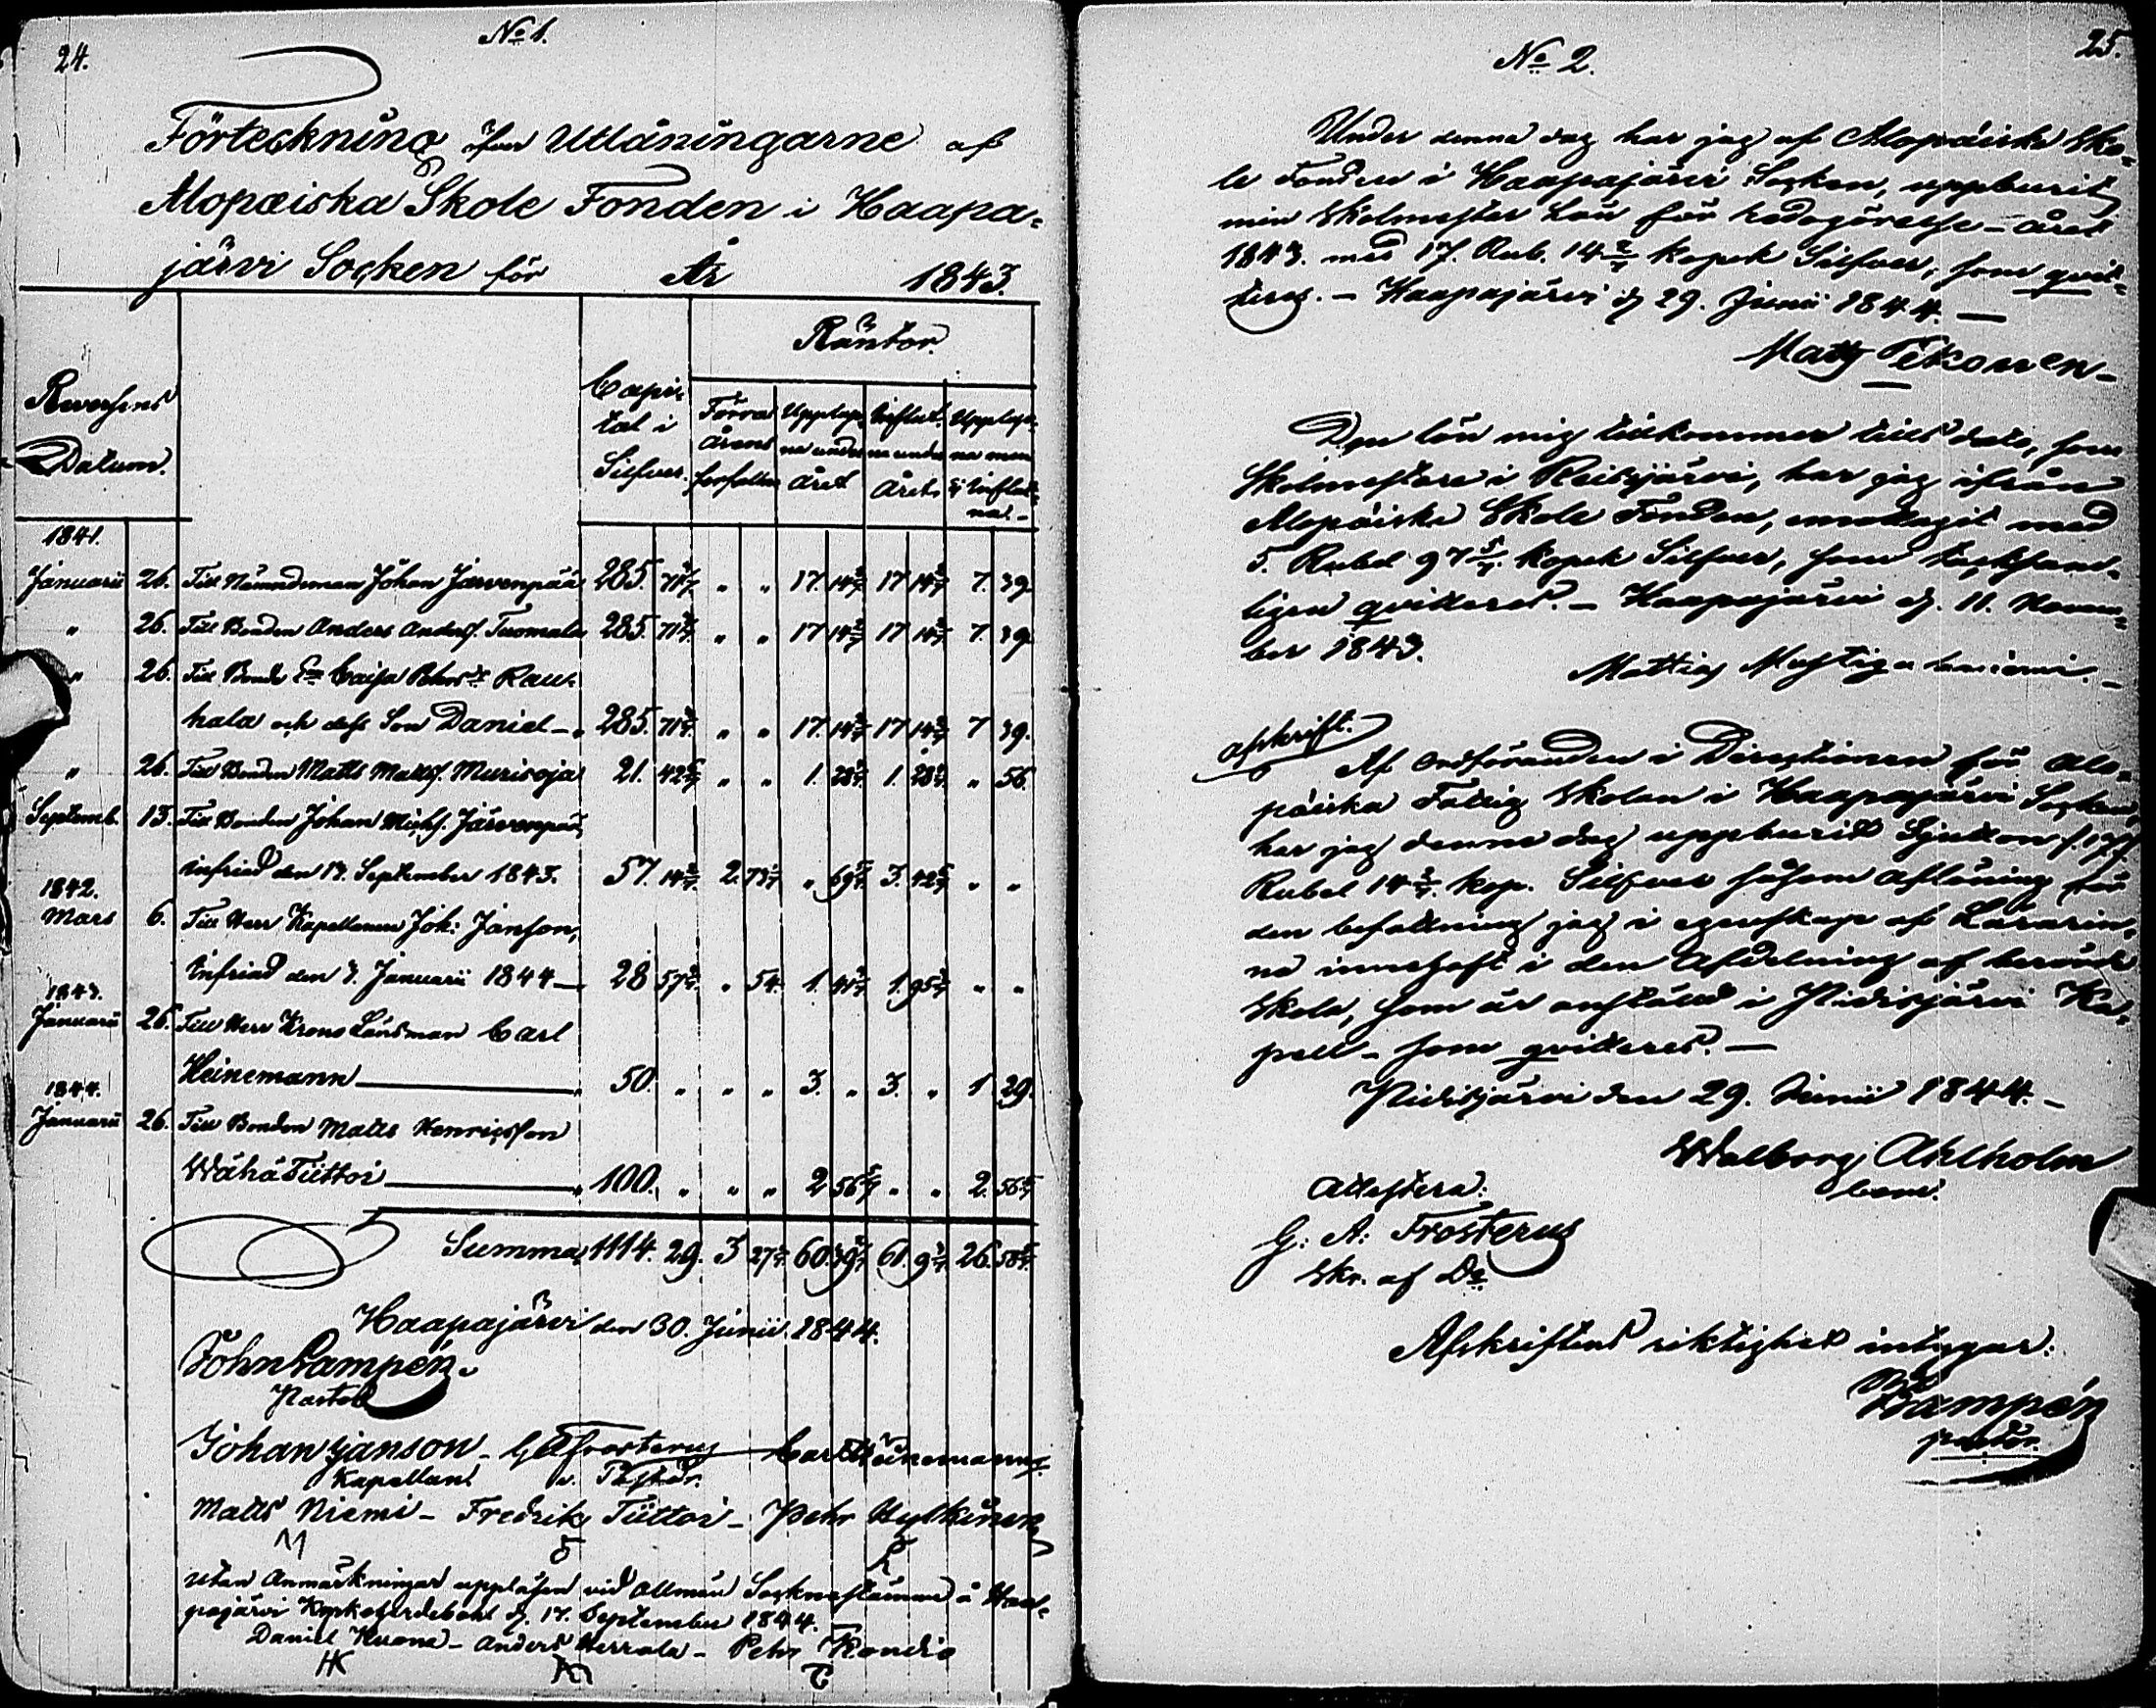 24.
No 1.
Förteckning öfver Utlåningarne af
Alopæiska Skole Fonden i Haapa-
järvi Socken för År 1843.
Reversens Datum.
Capital i Silfver.
Räntor.
Förra årens förfallna
Upplupna under året
Influtna under året.
Upplupna men ej influtna.
1841.
Januarii 26. Till Nämndeman Johan Järvenpää 285. 71 3/7 " " 17. 14 2/7 17 14 2/7 7. 39.
" 26. Till Bonden Anders Anders. Tuomala 285. 71 3/7 " " 17 14 2/7 17 14 2/7 7. 39.
" 26. Till Bonde Enkan Caisa Pehrs Dr Rau-
hala och dess Son Daniel 285. 71 3/7 " " 17. 14 2/7 17 14 2/7 7 39.
" 26. Till Bonden Matts Matts. Murisoja 21. 42 6/7 " " 1. 28 4/7 1. 28 4/7 " 56.
Septemb. 13. Till Bonden Johan Michs. Järvenpää,
infriad den 13. September 1843. 57. 14 2/7 2. 73 " 69 3. 42 6/7 " "
1842.
Mars 6. Till Herr Kapellanen Joh: Janson,
infriad den 3. Januarii 1844 28 57 " 54 1. 41 1. 95 " "
1843.
Januarii 26. Till Herr Krono Länsman Carl
Heinemann 50. " " " 3. " 3. " 1 29.
1844.
Januarii 26. Till Bonden Matts Henricsson
Wähä Tiittoi 100. " " " 2 56 " " 2. 56
Summa 1114. 29. 3 27 60. 39 61. 9 26. 58
Haapajärvi den 30. Junii 1844.
John Lampén.
Pastor
Johan Janson - G A Frosterus Carl Heinemann
Kapellant. v. Pastor.
Matts Niemi - Fredrik Tiittoi - Pehr Hylkinen
utan Anmärkningar uppläsen vid Allmän Socknestämma å Haa-
pajärvi Kyrkoherdebohl d. 17. September 1844.
Daniel Kuona - Anders Herrala - Pehr Kondio
25.
No 2.
Under denna dag har jag af Alopæiska Sko-
le Fonden i Haapajärvi Socken, uppburit
min Skolmästar Lön för redogörelse-året
1843. med 17. Rub. 14 2/7 kopek Silfver, som qvit-
teras. - Haapajärvi d. 29. Junii 1844. -
Matts Tikonen -
Den lön mig tillkommer till dato, som
Skolmästare i Reisjärvi, har jag ifrån
Alopæiska Skole Fonden, emottagit med
5. Rubel 97 5/7 kopek Silfver, som tacksam-
ligen qvitteras. - Haapajärvi d. 11. Novem-
ber 1843.
Mattias
afskrift.
Af Ordföranden i Direktionen för Alo-
pæiska Fattig Skolan i Haapajärvi Socken,
har jag denne dag uppburit Sjutton /:17:/
Rubel 14 2/7 kop. Silfver såsom aflöning för
den befattning jag i egenskap af Lärarin-
na innehaft i den Afdelning af berörde
Skola, som är anstäld i Pidisjärvi Ka-
pell - som qvitteras. -
Pidisjärvi den 29. Junii 1844. -
Walborg Ahlholm
Attestera:
G: A: Frosterus
Skr. af Do
Afskriftens riktighet intygar:
Lampén
pastor.